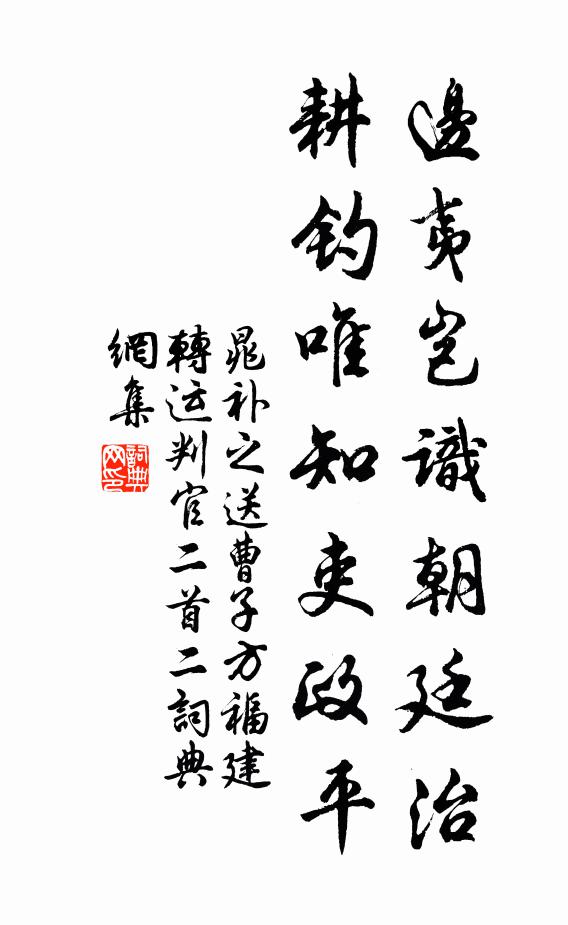 邊夷豈識朝廷治
耕釣唯知吏政平
晁补之送曹子方福建
轉运判官二首二詞典
網集
詞典
网印